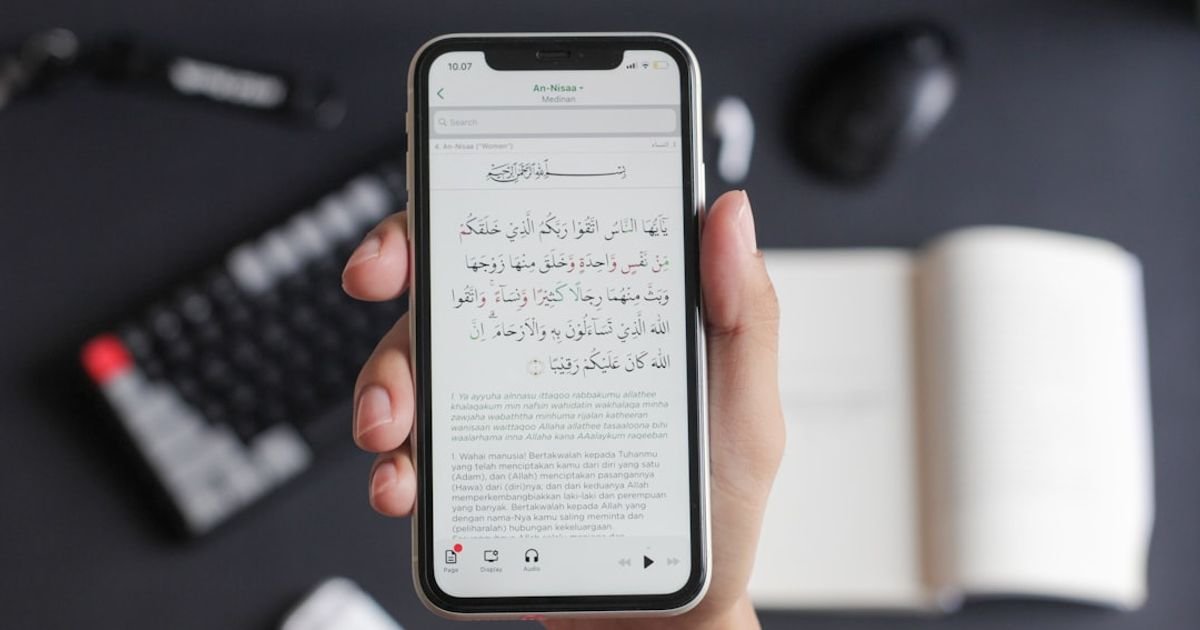 10.07
An-Nisaa
Medinan
Search
4. An-Nisaa ("Women")
٤. النساء
بِسْمِ اللَّهِ الرَّحْمَٰنِ الرَّحِيمِ
يٰٓاَيُّهَا النَّاسُ اتَّقُوْا رَبَّكُمُ الَّذِيْ خَلَقَكُمْ
مِّنْ نَّفْسٍ وَّاحِدَةٍ وَّخَلَقَ مِنْهَا زَوْجَهَا
وَبَثَّ مِنْهُمَا رِجَالًا كَثِيْرًا وَّنِسَاۤءً ۚ وَاتَّقُوا
اللّٰهَ الَّذِيْ تَسَاۤءَلُوْنَ بِهٖ وَالْاَرْحَامَ ۗ اِنَّ
اللّٰهَ كَانَ عَلَيْكُمْ رَقِيْبًا
1. Ya ayyuha alnnasu ittaqoo rabbakumu allathee
khalaqakum min nafsin wahidatin wakhalaqa minha
zawjaha wabaththa minhuma rijalan katheeran
wanisaan waittaqoo Allaha allathee tasaaloona bihi
waalarhama inna Allaha kana AAalaykum raqeeban
1. Wahai manusia! Bertakwalah kepada Tuhanmu
yang telah menciptakan kamu dari diri yang satu
(Adam), dan (Allah) menciptakan pasangannya
(Hawa) dari (diri)nya; dan dari keduanya Allah
memperkembangbiakkan laki-laki dan perempuan
yang banyak. Bertakwalah kepada Allah yang
dengan nama-Nya kamu saling meminta dan
(peliharalah) hubungan kekeluargaan.
Page
Display
Audio